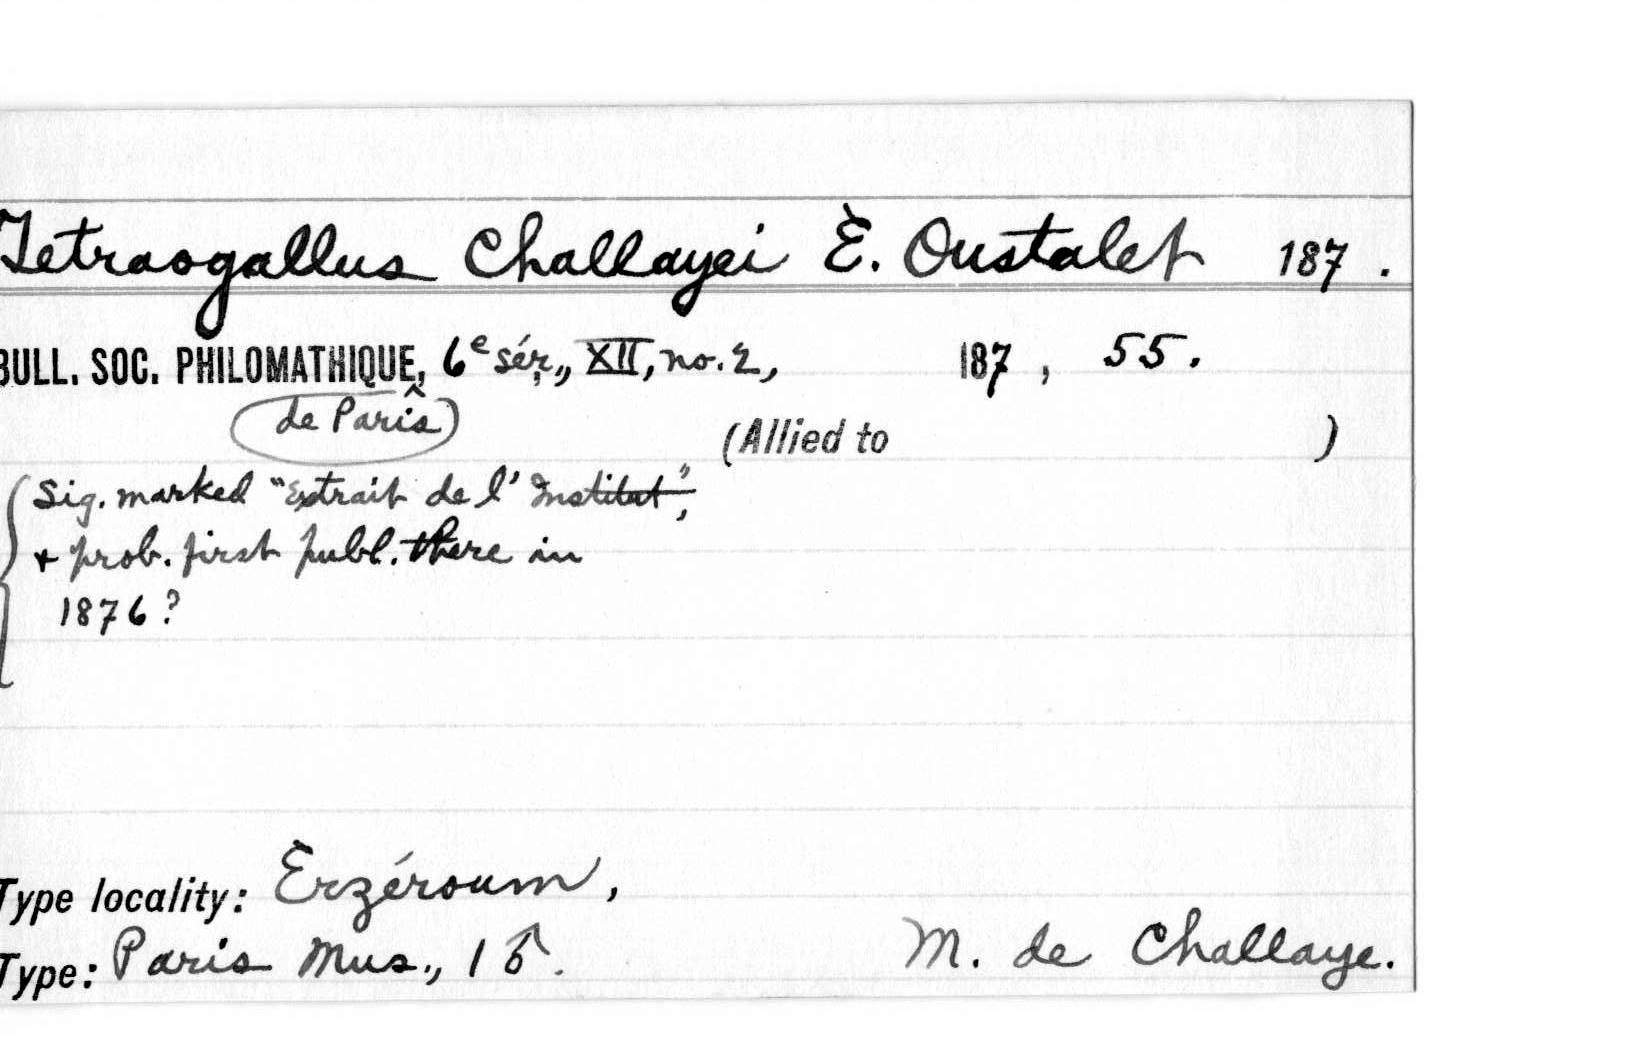 Tetraogallus Challayei E. Oustalet 187 .
BULL. SOC. PHILOMATHIQUE, 6e sér., XII, no. 2, 187 , 55.
(de Paris)
(Allied to )
Sig. marked "Extrait de l' Institut",
+ prob. first publ. there in
1876?
Type locality: Erzéroum,
Type: Paris Mus., 1 ♂. M. de Challaye.